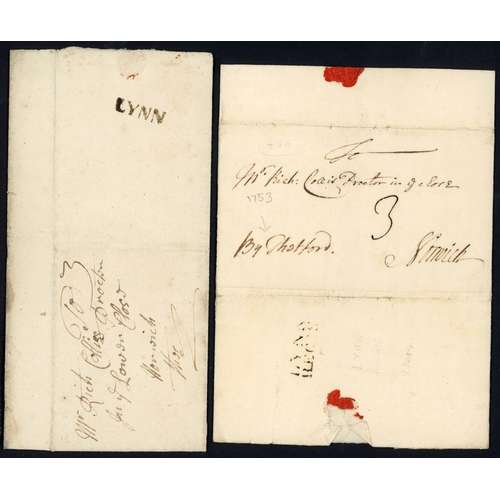 LYNN
To
3
Mr Rich Collis Proctor
in ye Lower Close
Norwich
To
Mr. Rich: Collis Proctor in ye close
1753
3
By Thetford.
Norwich
LYNN
REGIS